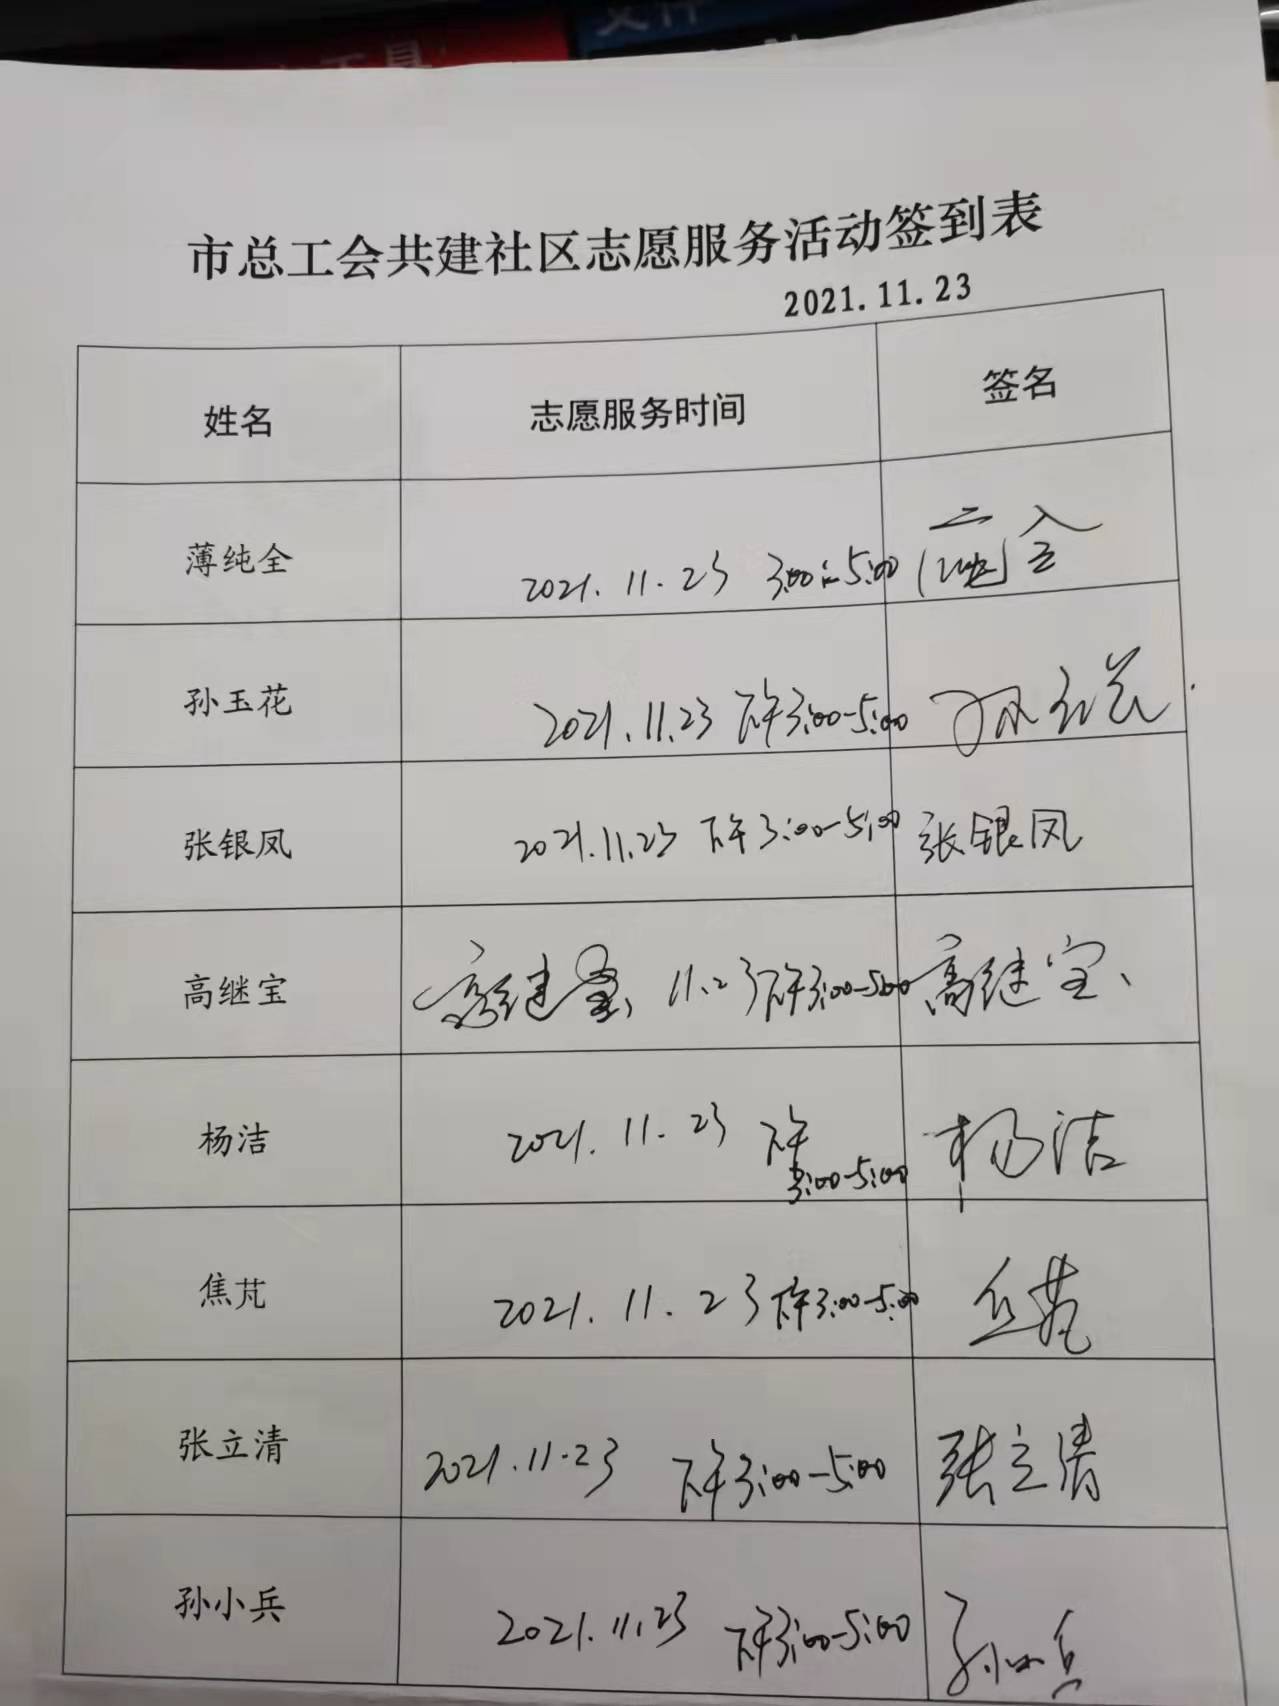 工具
文件
市总工会共建社区志愿服务活动签到表
2021.11.23
姓名 志愿服务时间 签名
薄纯全 2021.11.23 3:00-5:00
孙玉花 2021.11.23 下午3:00-5:00 孙玉花
张银凤 2021.11.23 下午3:00-5:00 张银凤
高继宝 高继宝 11.23 下午3:00-5:00 高继宝
杨洁 2021.11.23 下午 杨洁
3:00-5:00
焦芃 2021.11.23 下午3:00-5:00
张立清 2021.11.23 下午3:00-5:00 张立清
孙小兵 2021.11.23 下午3:00-5:00 孙小兵